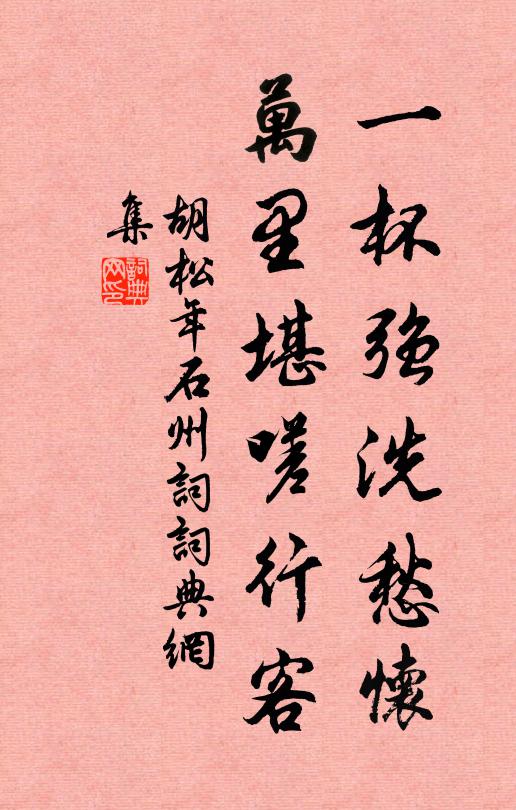 一杯强洗愁懷
萬里堪嗟行客
胡松年石州詞詞典網
集
詞典網印